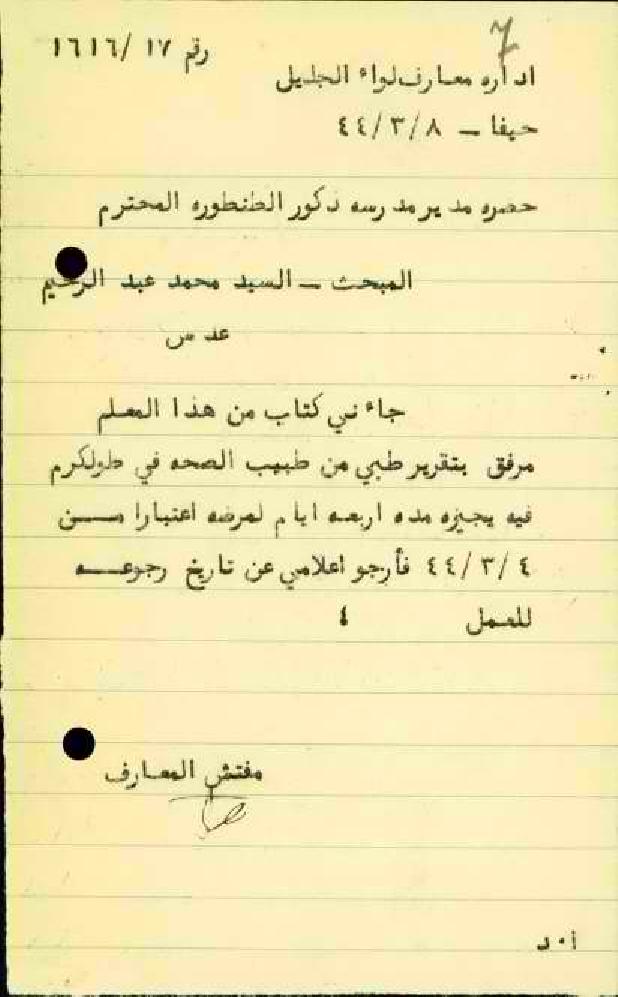 7
رقم ١٧ /١٦١٦
اداره معارف لواء الجليلى
حيفا – ٤٤/٣/٨
حضره مدير مدرسه ذكور الطنطوره المحترم
المبحث – السيد محمد عبد الرحيم
عدس
جاءني كتاب من هذا المعلم
مرفق بتقرير طبي من طبيب الصحه في طولكرم
فيه يجيزه مده اربعه ايام لمرضه اعتبارا مــن
٤٤/٣/٤ فأرجو اعلامي عن تاريخ رجوعــه
للعمل ٤
مفتش المعارف
أ٠د